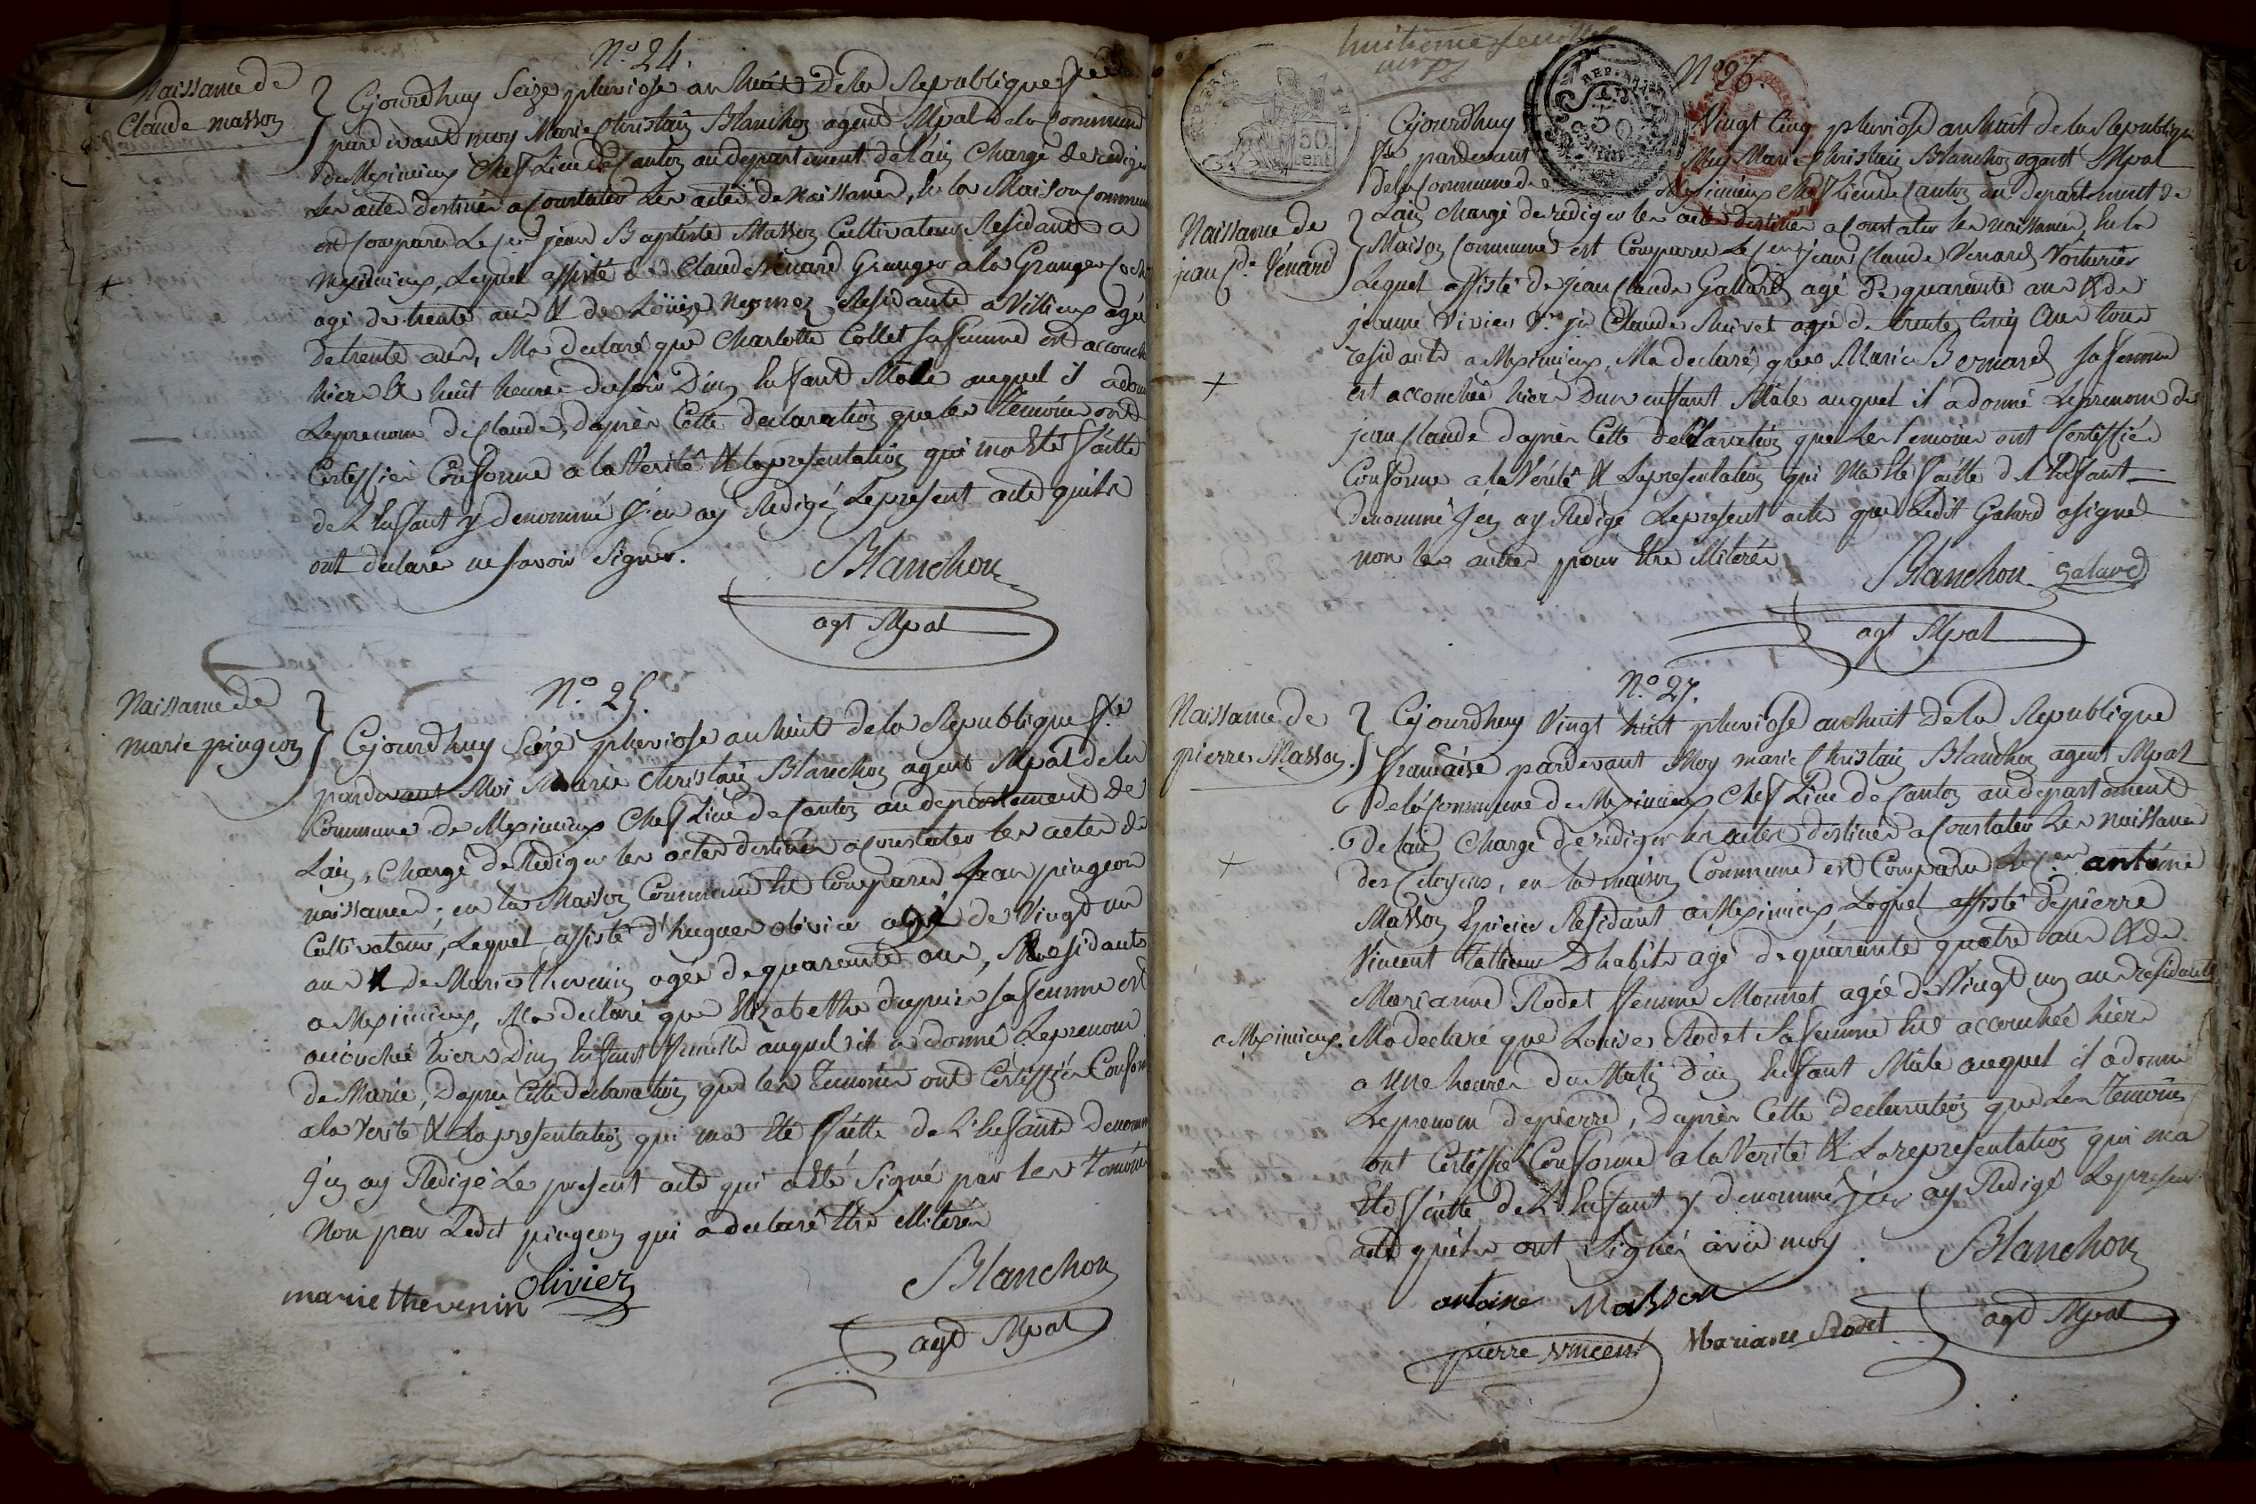 N.o 24.
Naissance de
Claude Masson
Cejourdhuy Seize pluviose an huit de la Republique f.se
pardevant moy Marie Christain Blanchon agent Mpal de la Commune
de Meximieux Chef Lieu de Canton au departement de lain Chargé de rediger
Les actes destinés a Constater Les actes de Naissances, En la Maison Commune
est Comparu Le C.en jean Baptiste Masson Cultivateur Residant a
Meximieux, Lequel assisté de Claude Venard Granger a la Grange
agé de trente ans & de Loüise Residante a Villieux agée
De trente ans, Ma declaré que Charlotte Collet sa femme est accouchée
hier a huit heures du soir D'un Enfant Male auquel il a donné
Le prenom de Claude, daprès Cette declaration que les Temoins ont
Certiffiés Conforme a la Verité & la presentation qui ma Eté faitte
de L'Enfant y denommé J'en ay Redigé Le present acte quils
ont declaré ne savoir Signer.
Blanchon
agt Mpal
N.o 25.
Naissance de
marie pingeon
Cejourdhuy Seize pluviose an huit de la Republique f.se
pardevant Moi Marie Christain Blanchon agent Mpal de la
Commune de Meximieux Chef Lieu de Canton au departement de
Lain, Chargé de Rediger les actes destinés a Constater les actes de
naissances; en la Maison Commune Est Comparu Jean pingeon
Cultivateur, Lequel assisté d'hugues olivier agé de Vingt un
ans & de Marie thevenin agée de quarante ans, Residants
a Meximieux, Ma declaré que Elizabeth drepuier sa femme est
accouchée hier D'un Enfant femelle auquel il a donné Le prenom
de Marie, Daprès Cette declaration que les Temoins ont Certiffiés Conforme
a la Verité & La presentation qui ma Eté faitte de L'Enfant Denommé
J'en ay Redigé Le present acte qui a Eté Signé par les temoins
Non par Ledit pingeon qui a declaré Etre illiteré
marie thevenin olivier
Blanchon
agt Mpal
huitieme feuille
N.o 26.
Naissance de
jean C.de Vénard
Cejourdhuy Vingt Cinq pluviose an huit de la Republique
f.se pardevant Moy Marie Christain Blanchon agent Mpal
de la Commune de Meximieux Chef Lieu de Canton au departement de
Lain Chargé de rediger les actes destinés a Constater les naissances, En la
Maison Commune est Comparu Le C.en jean Claude Venard Voiturier
Lequel assisté de jean Claude Galland agé de quarante ans & de
jeanne Vivier V.e j.n Claude agée de trente Cinq ans tous
residants a Meximieux, Ma declaré que Marie Bernard sa femme
est accouchée hier D'un enfant Mâle auquel il a donné Le prenom de
jean Claude dapres Cette declaration que Les temoins ont Certiffiés
Conforme a la Vérité & La presentation qui Ma Eté faitte de L'Enfant
Denommé J'en ay Redigé Le present acte que Ledit Galand a signé
non les autres pour Etre illiterés
Blanchon Galand
agt Mpal
N.o 27.
Naissance de
pierre Masson.
Cejourdhuy Vingt huit pluviose an huit de la Republique
francaise pardevant Moy marie Christain Blanchon agent Mpal
de la Commune de Meximieux Chef Lieu de Canton au departement
de lain Chargé de rediger les actes destinés a Constater Les naissances
des Citoyens, en la maison Commune est Comparu Le C.en antoine
Masson Epicier Residant a Meximieux Lequel assisté de pierre
Vincent tailleur D'habits agé de quarante quatre ans & de
Marianne Rodet femme Monnet agée de Vingt un ans residants
a Meximieux, Ma declaré que Louise Rodet Sa femme Est accouchée hier
a Une heure du Matin d'un Enfant Mâle auquel il a donné
Le prenom de pierre, Daprès Cette declaration que Les Temoins
ont Certiffié Conforme a la Verité & La representation qui ma
Eté faitte de L'Enfant y denommé j'en ay Redigé Le present
acte quils ont Signés avec moy.
Blanchon
agt Mpal
antoine Masson
pierre vincent Mariane Rodet